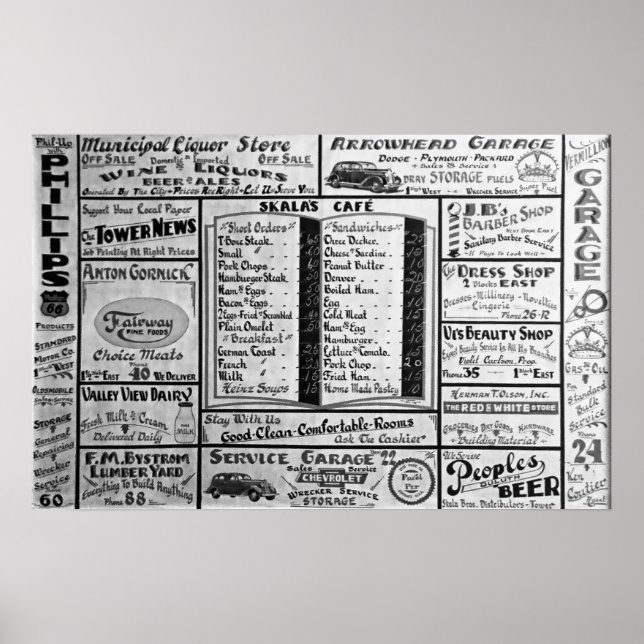 Phil-Up
with
PHILLIPS
Phillips
66
PRODUCTS
STANDARD
MOTOR CO.
1 BLK WEST
OLDSMOBILE
Sales - Service
STORAGE
General
Repairing
Wrecker
Service
Phone
60
Municipal Liquor Store
OFF SALE Domestic & Imported OFF SALE
WINE - LIQUORS
BEER & ALES
Operated By The City - Prices Are Right - Let Us Serve You
ARROWHEAD GARAGE
DODGE - PLYMOUTH - PACKARD
Sales & Service
DRAY STORAGE FUELS
1 BLK WEST WRECKER SERVICE
Super Fuel
VERMILLION
GARAGE
GAS & OIL
For
Standard
Bulk
Service
Phone
24
Ken
Coutier
Agent
Support Your Local Paper
The TOWER NEWS
Job Printing At Right Prices
ANTON GORNICK
Fairway
FINE FOODS
Choice Meats
Phone
EAST 40 WE DELIVER
VALLEY VIEW DAIRY
Fresh Milk & Cream
Delivered Daily
MILK
F.M. BYSTROM
LUMBER YARD
Everything To Build Anything
Phone 88
SKALA'S CAFÉ
Short Orders
T-Bone Steak
Small " 60
Pork Chops
Hamburger Steak
Ham & Eggs
Bacon & Eggs
2 Eggs - Fried or Scrambled
Plain Omelet 50
Breakfast
German Coast
French
Milk 15
Heinz Soups 15
Sandwiches
Three Decker 25
Cheese or Sardine 15
Peanut Butter
Denver
Boiled Ham
Egg
Cold Meat 15
Ham & Egg
Hamburger
Lettuce & Tomato
Pork Chop 20
Fried Ham
Home Made Pastry
Stay With Us
Good-Clean-Comfortable-Rooms
Ask The Cashier
SERVICE GARAGE "22"
Sales Service
CHEVROLET
WRECKER SERVICE
STORAGE
Purol
Pep
J.B's
BARBER SHOP
NEXT DOOR EAST
Sanitary Barber Service
It Pays To Look Well
The DRESS SHOP
2 Blocks EAST
Dresses - Millinery - Novelties
Lingerie Phone 26-R
VI'S BEAUTY SHOP
Expert Beauty Service In All Its Branches
Violet Carlson, Prop.
Phone 35 1 BLOCK EAST
HERMAN T. OLSON, INC.
THE RED & WHITE STORE
GROCERIES DRY GOODS HARDWARE
Building Material
We Serve
Peoples
DULUTH
BEER
Skala Bros. Distributors - Tower